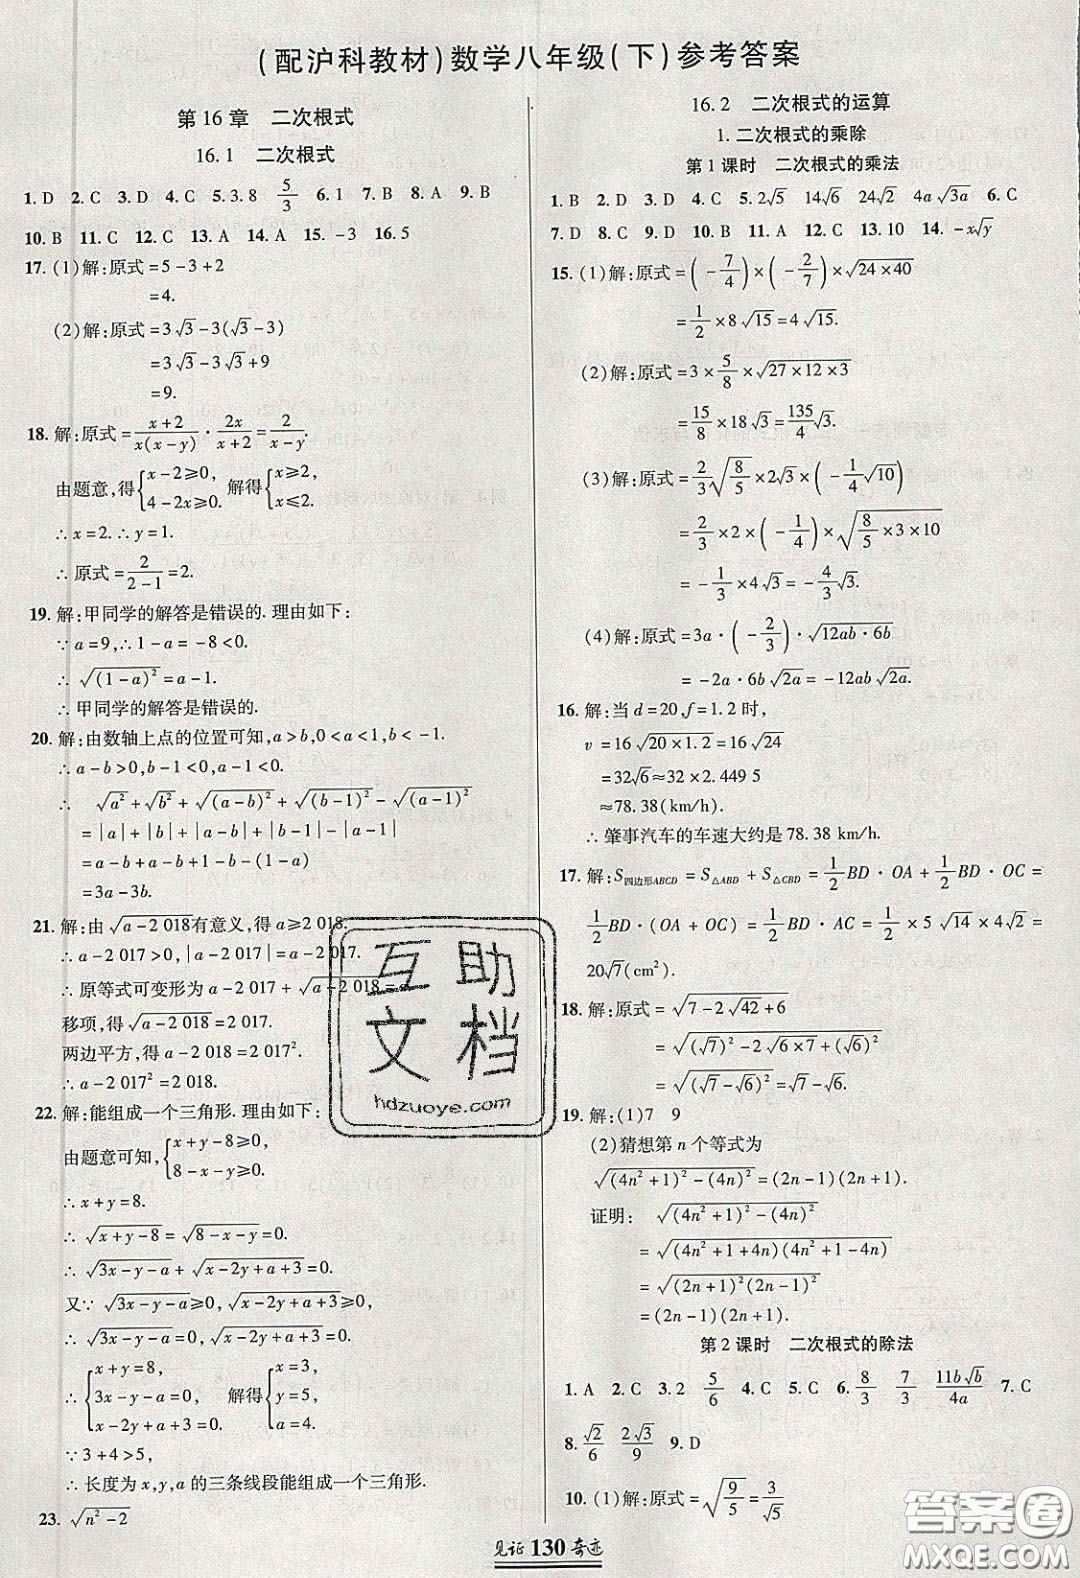 (配沪科教材)数学八年级(下)参考答案
第16章 二次根式
16.1 二次根式
1. D 2. C 3. D 4. C 5. 3.8 5/3 6. 1 7. B 8. A 9. B
10. B 11. C 12. C 13. A 14. A 15. -3 16. 5
17. (1)解:原式=5-3+2
=4.
(2)解:原式=3√3-3(√3-3)
=3√3-3√3+9
=9.
18. 解:原式=(x+2)/(x(x-y))·2x/(x+2)=2/(x-y).
由题意,得{x-2≥0, 4-2x≥0. 解得{x≥2, x≤2.
∴x=2.∴y=1.
∴原式=2/(2-1)=2.
19. 解:甲同学的解答是错误的. 理由如下:
∵a=9,∴1-a=-8<0.
∴√((1-a)²)=a-1.
∴甲同学的解答是错误的.
20. 解:由数轴上点的位置可知,a>b,0<a<1,b<-1.
∴a-b>0,b-1<0,a-1<0.
∴ √(a²)+√(b²)+√((a-b)²)+√((b-1)²)-√((a-1)²)
=|a|+|b|+|a-b|+|b-1|-|a-1|
=a-b+a-b+1-b-(1-a)
=3a-3b.
21. 解:由√(a-2 018)有意义,得a≥2 018.
∴a-2 017>0,|a-2 017|=a-2 017.
∴原等式可变形为a-2 017+√(a-2 018)=a.
移项,得√(a-2 018)=2 017.
两边平方,得a-2 018=2 017².
∴a-2 017²=2 018.
22. 解:能组成一个三角形. 理由如下:
由题意可知,{x+y-8≥0, 8-x-y≥0.
∴x+y=8.
∴√(x+y-8)=√(8-x-y)=0.
∴√(3x-y-a)+√(x-2y+a+3)=0.
又∵√(3x-y-a)≥0,√(x-2y+a+3)≥0,
∴√(3x-y-a)=0,√(x-2y+a+3)=0.
∴{x+y=8, 3x-y-a=0, x-2y+a+3=0. 解得{x=3, y=5, a=4.
∵3+4>5,
∴长度为x,y,a的三条线段能组成一个三角形.
23. √(n²-2)
16.2 二次根式的运算
1. 二次根式的乘除
第1课时 二次根式的乘法
1. B 2. D 3. D 4. C 5. 2√5 14√6 24√2 4a√(3a) 6. C
7. D 8. D 9. B 10. C 11. C 12. C 13. 10 14. -x√y
15. (1)解:原式=(-7/4)×(-2/7)×√(24×40)
=1/2×8√15=4√15.
(2)解:原式=3×5/8×√(27×12×3)
=15/8×18√3=135/4√3.
(3)解:原式=2/3√(8/5)×2√3×(-1/4√10)
=2/3×2×(-1/4)×√(8/5×3×10)
=-1/3×4√3=-4/3√3.
(4)解:原式=3a·(-2/3)·√(12ab·6b)
=-2a·6b√(2a)=-12ab√(2a).
16. 解:当d=20,f=1.2时,
v=16√(20×1.2)=16√24
=32√6≈32×2.449 5
≈78.38(km/h).
∴肇事汽车的车速大约是78.38 km/h.
17. 解:S四边形ABCD=S△ABD+S△CBD=1/2BD·OA+1/2BD·OC=
1/2BD·(OA+OC)=1/2BD·AC=1/2×5√14×4√2=
20√7(cm²).
18. 解:原式=√(7-2√42+6)
=√((√7)²-2√(6×7)+(√6)²)
=√((√7-√6)²)=√7-√6.
19. 解:(1)7 9
(2)猜想第n个等式为
√((4n²+1)²-(4n)²)=(2n-1)(2n+1).
证明: √((4n²+1)²-(4n)²)
=√((4n²+1+4n)(4n²+1-4n))
=√((2n+1)²(2n-1)²)
=(2n-1)(2n+1).
第2课时 二次根式的除法
1. A 2. C 3. 2 5/6 4. C 5. C 6. 8/3 7/3 11b√b/4a 7. C
8. √2/6 2√3/9 9. D
10. (1)解:原式=√(9/5)=3/√5
见证130奇迹
互助
文档
hdzuoye.com
答案圈
MXQE.COM